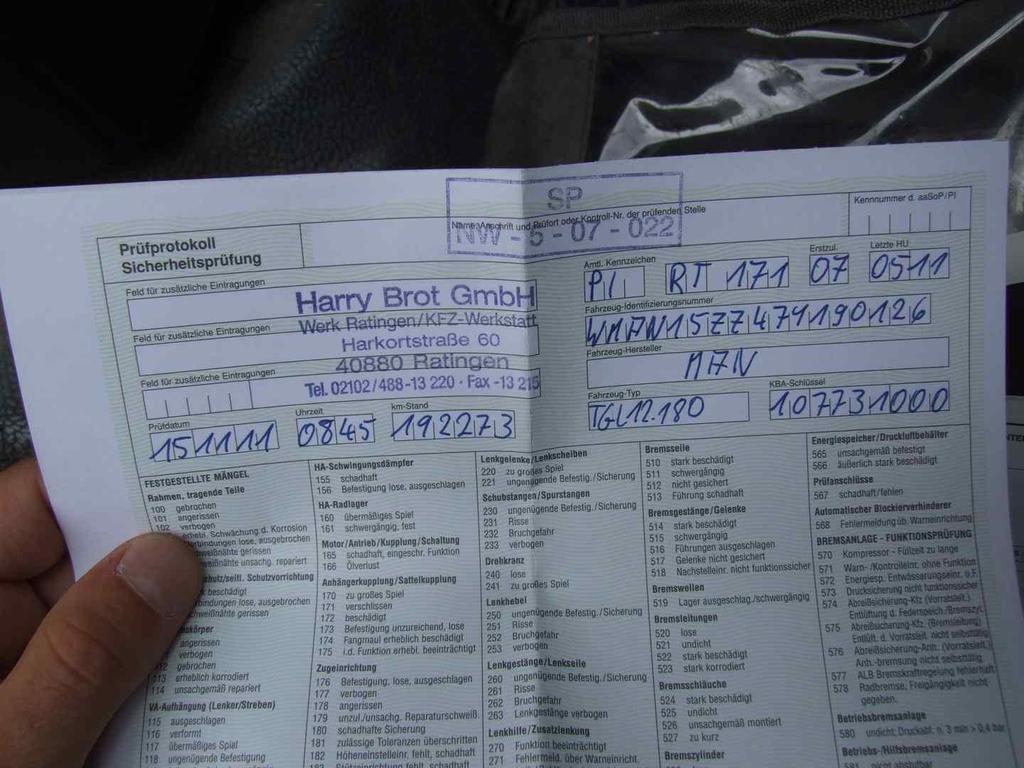 SP
Name, Anschrift und Prüfort oder Kontroll-Nr. der prüfenden Stelle
NW - 5 - 07 - 022
Kennnummer d. aaSoP/PI
Prüfprotokoll
Sicherheitsprüfung
Feld für zusätzliche Eintragungen
Harry Brot GmbH
Werk Ratingen/KFZ-Werkstatt
Feld für zusätzliche Eintragungen
Harkortstraße 60
40880 Ratingen
Feld für zusätzliche Eintragungen
Tel. 02102/488-13 220 · Fax -13 215
Amtl. Kennzeichen
Erstzul.
Letzte HU
PI RT 171 07 0511
Fahrzeug-Identifizierungsnummer
Fahrzeug-Hersteller
MAN
Fahrzeug-Typ
KBA-Schlüssel
TGL12.180
107731000
Prüfdatum
Uhrzeit
km-Stand
151111 0845 192273
FESTGESTELLTE MÄNGEL
Rahmen, tragende Teile
100 gebrochen
101 angerissen
102 verbogen
Schwächung d. Korrosion
lose, ausgebrochen
gerissen
unsachg. repariert
Schutzvorrichtung
beschädigt
lose, ausgebrochen
gerissen
angerissen
verbogen
112 gebrochen
113 erheblich korrodiert
114 unsachgemäß repariert
VA-Aufhängung (Lenker/Streben)
115 ausgeschlagen
116 verformt
117 übermäßiges Spiel
118 ungenügende Befestigung
HA-Schwingungsdämpfer
155 schadhaft
156 Befestigung lose, ausgeschlagen
HA-Radlager
160 übermäßiges Spiel
161 schwergängig, fest
Motor/Antrieb/Kupplung/Schaltung
165 schadhaft, eingeschr. Funktion
166 Ölverlust
Anhängerkupplung/Sattelkupplung
170 zu großes Spiel
171 verschlissen
172 beschädigt
173 Befestigung unzureichend, lose
174 Fangmaul erheblich beschädigt
175 i.d. Funktion erhebl. beeinträchtigt
Zugeinrichtung
176 Befestigung, lose, ausgeschlagen
177 verbogen
178 angerissen
179 unzul./unsachg. Reparaturschweiß.
180 schadhafte Sicherung
181 zulässige Toleranzen überschritten
182 Höheneinstelleinr. fehlt, schadhaft
183 Stützeinrichtung fehlt, schadhaft
Lenkgelenke/Lenkscheiben
220 zu großes Spiel
221 ungenügende Befestig./Sicherung
Schubstangen/Spurstangen
230 ungenügende Befestig./Sicherung
231 Risse
232 Bruchgefahr
233 verbogen
Drehkranz
240 lose
241 zu großes Spiel
Lenkhebel
250 ungenügende Befestig./Sicherung
251 Risse
252 Bruchgefahr
253 verbogen
Lenkgestänge/Lenkseile
260 ungenügende Befestig./Sicherung
261 Risse
262 Bruchgefahr
263 Lenkgestänge verbogen
Lenkhilfe/Zusatzlenkung
270 Funktion beeinträchtigt
271 Fehlermeld. über Warneinricht.
Bremsseile
510 stark beschädigt
511 schwergängig
512 nicht gesichert
513 Führung schadhaft
Bremsgestänge/Gelenke
514 stark beschädigt
515 schwergängig
516 Führungen ausgeschlagen
517 Gelenke nicht gesichert
518 Nachstelleinr. nicht funktionssicher
Bremswellen
519 Lager ausgeschlag./schwergängig
Bremsleitungen
520 lose
521 undicht
522 stark beschädigt
523 stark korrodiert
Bremsschläuche
524 stark beschädigt
525 undicht
526 unsachgemäß montiert
527 zu kurz
Bremszylinder
Energiespeicher/Druckluftbehälter
565 unsachgemäß befestigt
566 äußerlich stark beschädigt
Prüfanschlüsse
567 schadhaft/fehlen
Automatischer Blockierverhinderer
568 Fehlermeldung üb. Warneinrichtung
BREMSANLAGE - FUNKTIONSPRÜFUNG
570 Kompressor - Füllzeit zu lange
571 Warn- /Kontrolleinr. ohne Funktion
572 Energiesp. Entwässerungseinr. o.F.
573 Drucksicherung nicht funktionssicher
574 Abreißsicherung-Kfz (Vorratsleit.)
Entlüftung d. Federspeich./Bremszyl.
575 Abreißsicherung-Kfz (Bremsleitung)
Entlüft. d. Vorratsleit. nicht selbsttätig
576 Abreißsicherung-Anh. (Vorratsleit.)
Anh.-bremsung nicht selbsttätig
577 ALB Bremskraftregelung fehlerhaft
578 Radbremse, Freigängigkeit nicht
gegeben.
Betriebsbremsanlage
580 undicht; Druckabf. n. 3 min > 0,4 bar
Betriebs-/Hilfsbremsanlage
581 nicht abstufbar